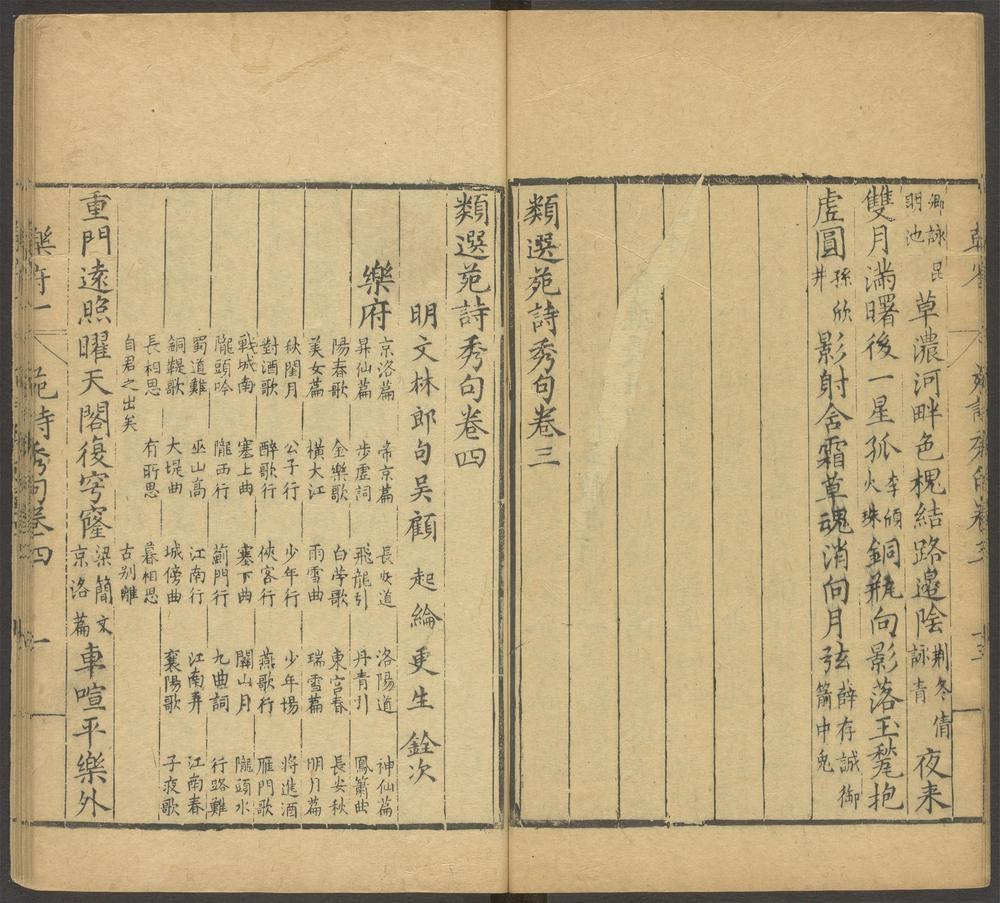 卿詠昆明池草濃河畔色槐結路邊陰荆冬倩詠青夜来
雙月滿曙後一星孤李頎火珠銅甁向影落玉甃抱
虛圓孫欣井影射含霜草魂消向月弦薛存誠御箭中兎
類選苑詩秀句卷三
類選苑詩秀句卷四
明文林郎句吳顧起綸更生銓次
樂府
京洛篇 帝京篇 長安道 洛陽道 神仙篇
昇仙篇 步虛詞 飛龍引 丹青引 鳳簫曲
陽春歌 金樂歌 白苧歌 東宫春 長安秋
美女篇 橫大江 雨雪曲 瑞雪篇 明月篇
秋閨月 公子行 少年行 少年場 將進酒
對酒歌 醉歌行 俠客行 燕歌行 雁門歌
戰城南 塞上曲 塞下曲 關山月 隴頭水
隴頭吟 隴西行 薊門行 九曲詞 行路難
蜀道難 巫山高 江南行 江南弄 江南春
銅鞮歌 大堤曲 城傍曲 襄陽歌 子夜歌
長相思 有所思 暮相思
自君之出矣 古别離
重門遠照曜天閣復穹窿梁簡文京洛篇車喧平樂外
樂府一 苑詩秀句卷四 一